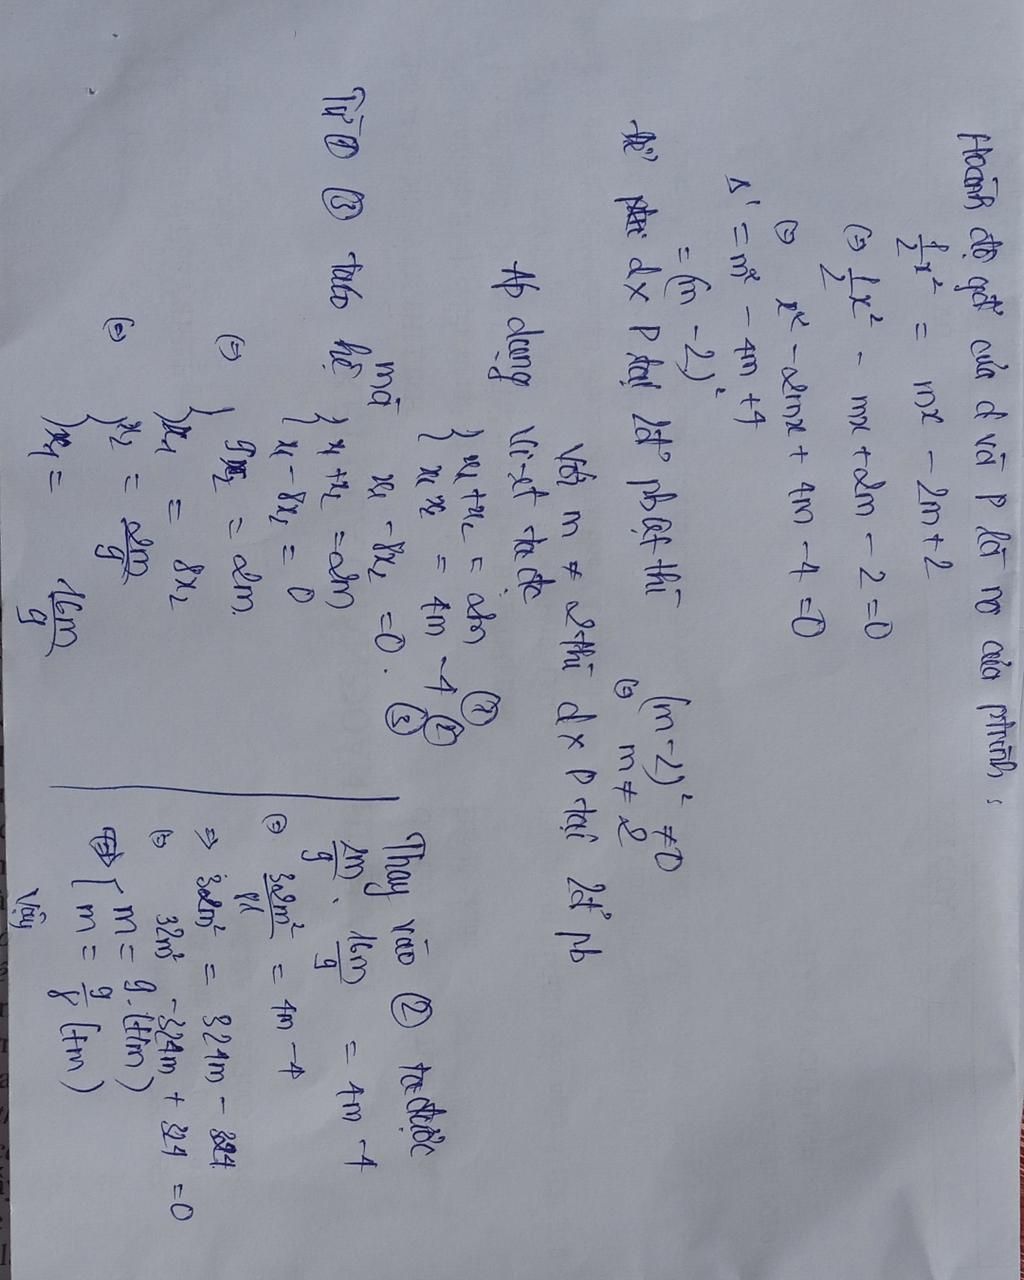 Hoành độ gđ của d và P là no của ptrình :
1/2 x² = mx - 2m + 2
⇔ 1/2 x² - mx + 2m - 2 = 0
⇔ x² - 2mx + 4m - 4 = 0
Δ' = m² - 4m + 4
= (m - 2)²
để d x P tại 2đ' phật thì (m - 2)² ≠ 0
⇔ m ≠ 2
Với m ≠ 2 thì d x P tại 2đ' pb
Áp dụng Vi-ét ta đc
{ x₁ + x₂ = 2m ①
x₁ x₂ = 4m - 4 ②
mà x₁ - 8x₂ = 0. ③
Từ ① ③ ta có hệ { x₁ + x₂ = 2m
x₁ - 8x₂ = 0
⇔ { 9x₂ = 2m
x₁ = 8x₂
⇔ { x₂ = 2m/9
x₁ = 16m/9
Thay vào ② ta được
2m/9 . 16m/9 = 4m - 4
⇔ 32m²/81 = 4m - 4
⇒ 32m² = 324m - 324
⇔ 32m² - 324m + 324 = 0
⇔ [ m = 9 (t/m)
m = 9/8 (tm)
Vậy